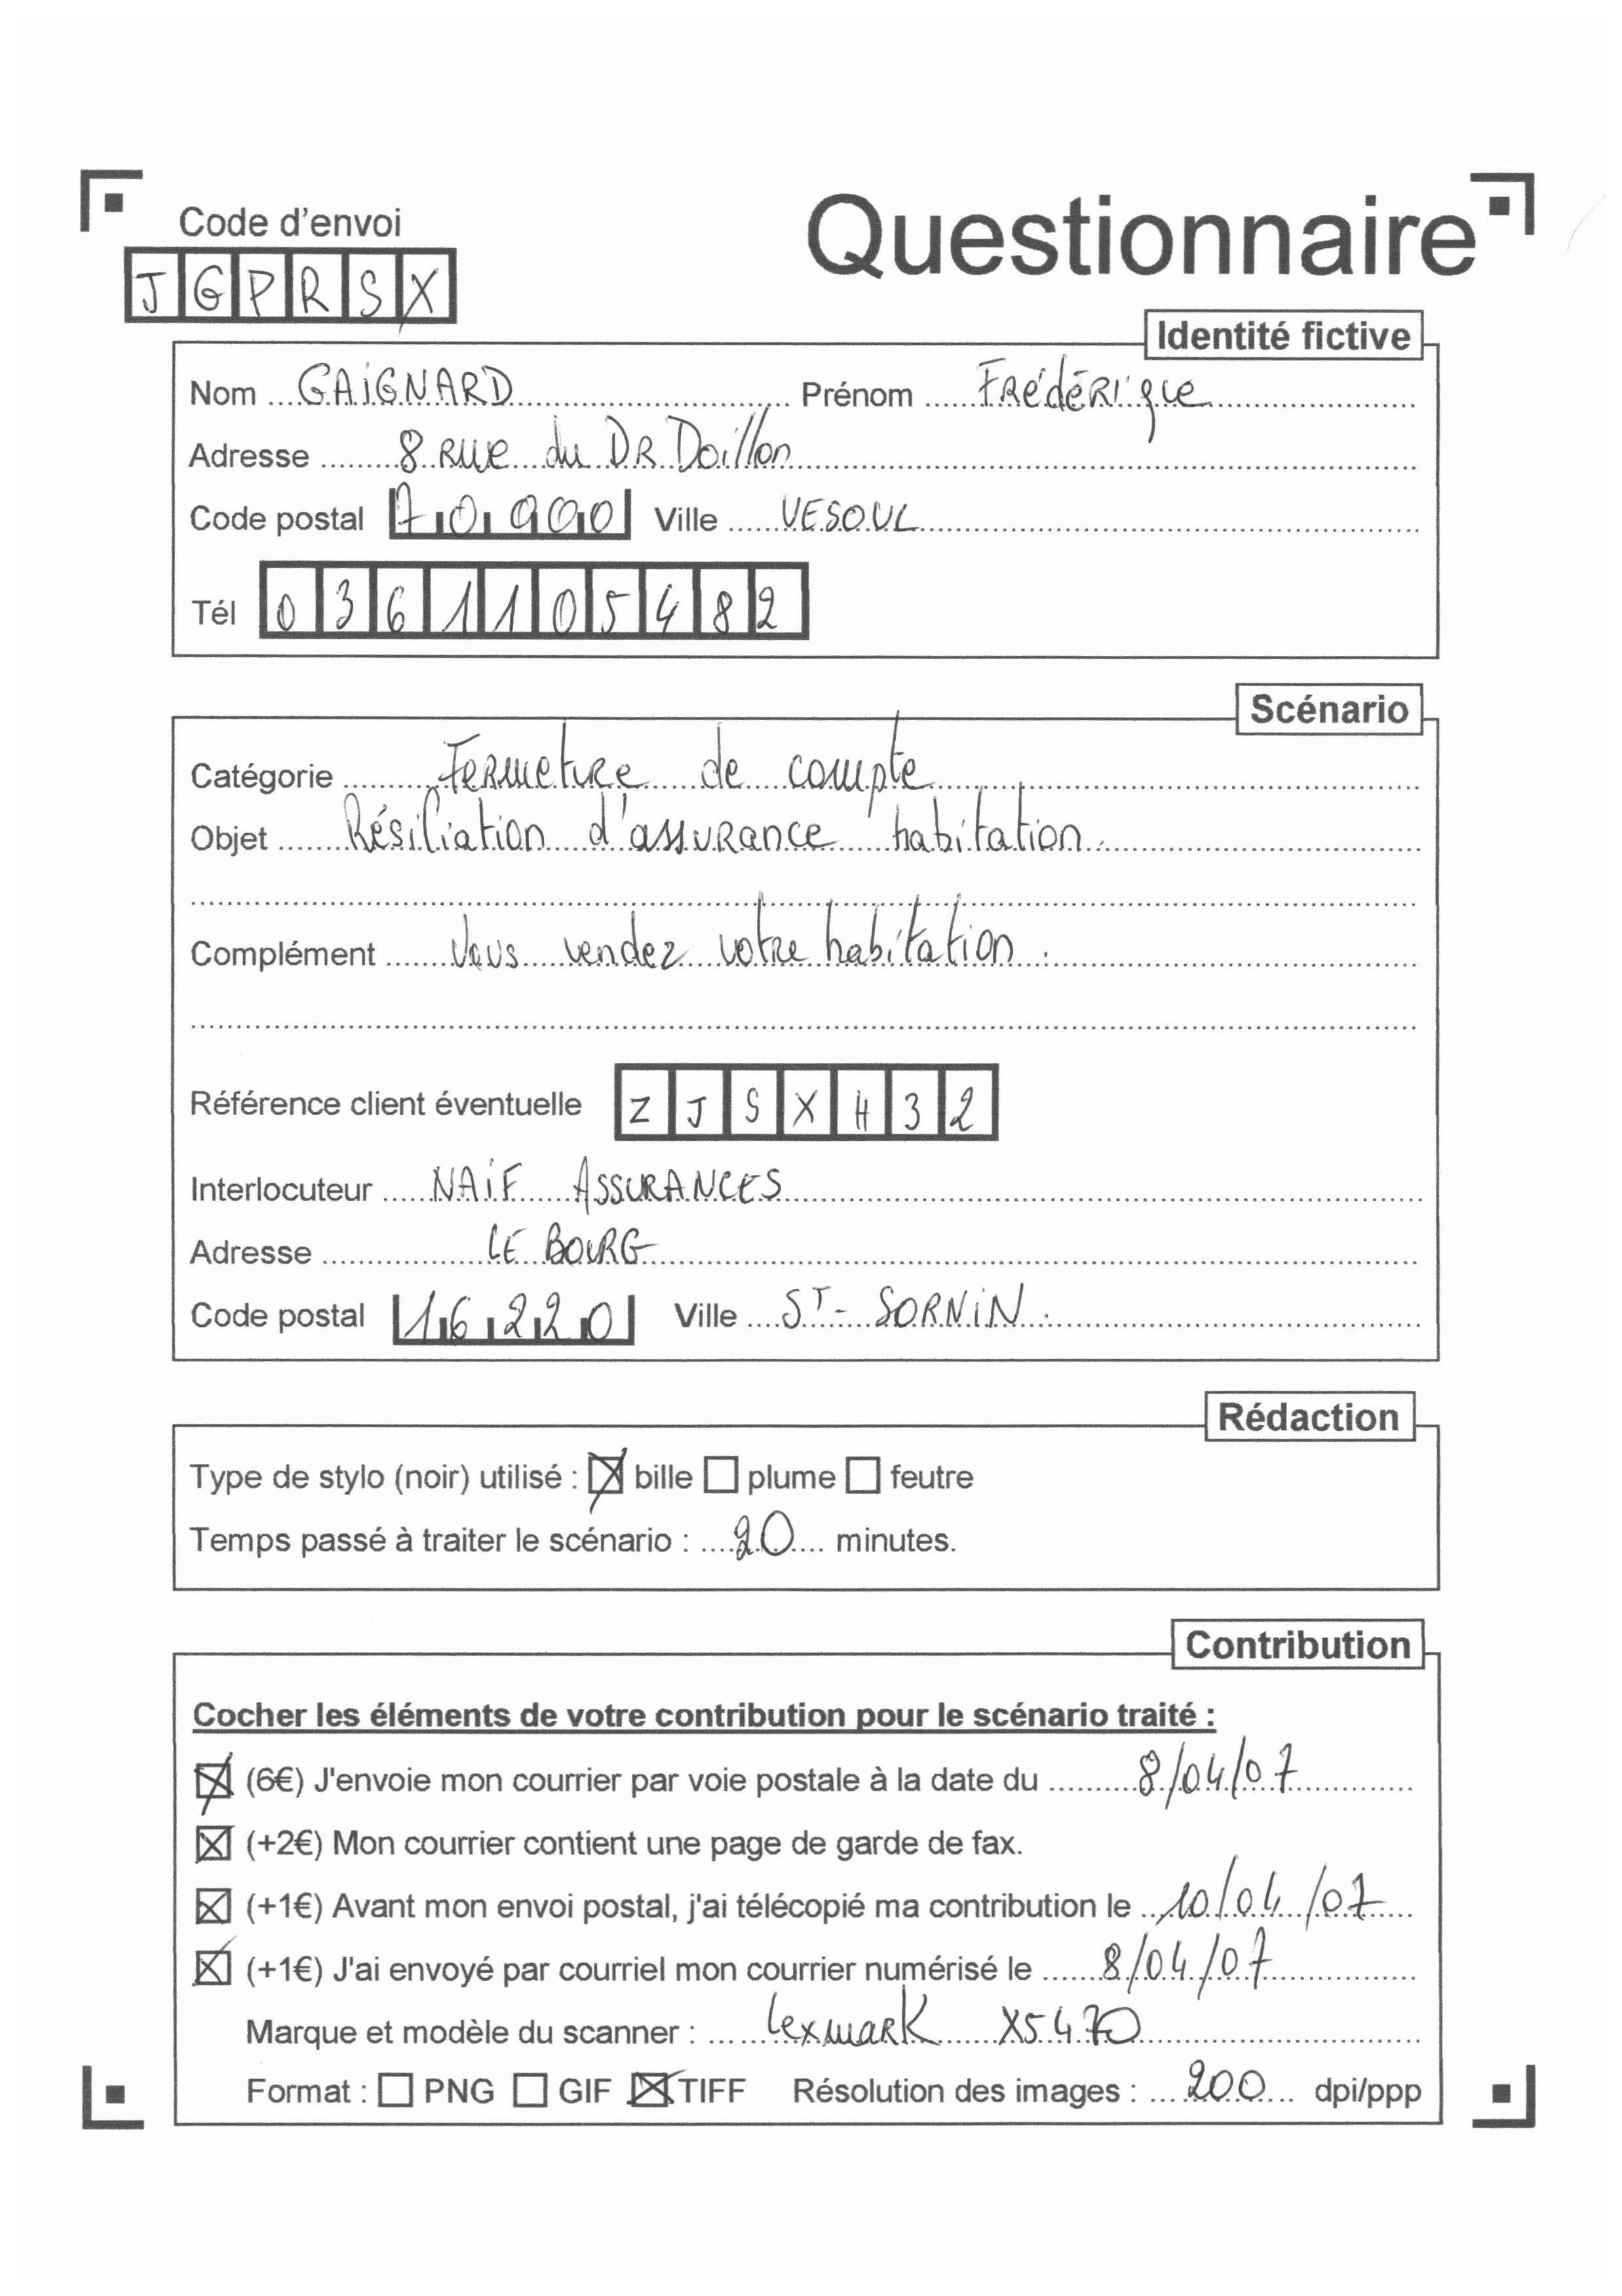 Code d'envoi
Questionnaire
JGPRSX
Identité fictive
Nom GAIGNARD Prénom FRédéRique
Adresse 8 Rue du DR Doillon
Code postal 70000 Ville VESOUL
Tél 0361105482
Scénario
Catégorie Fermeture de compte
Objet Résiliation d'assurance habitation.
Complément Vous vendez votre habitation.
Référence client éventuelle ZJSXH32
Interlocuteur NAiF ASSURANCES
Adresse LE BOURG
Code postal 16220 Ville ST-SORNiN.
Rédaction
Type de stylo (noir) utilisé : ☒ bille ☐ plume ☐ feutre
Temps passé à traiter le scénario : 20 minutes.
Contribution
Cocher les éléments de votre contribution pour le scénario traité :
☒ (6€) J'envoie mon courrier par voie postale à la date du 8/04/07
☒ (+2€) Mon courrier contient une page de garde de fax.
☒ (+1€) Avant mon envoi postal, j'ai télécopié ma contribution le 10/04/07
☒ (+1€) J'ai envoyé par courriel mon courrier numérisé le 8/04/07
Marque et modèle du scanner : Lexmark X5470
Format : ☐ PNG ☐ GIF ☒ TIFF Résolution des images : 200 dpi/ppp